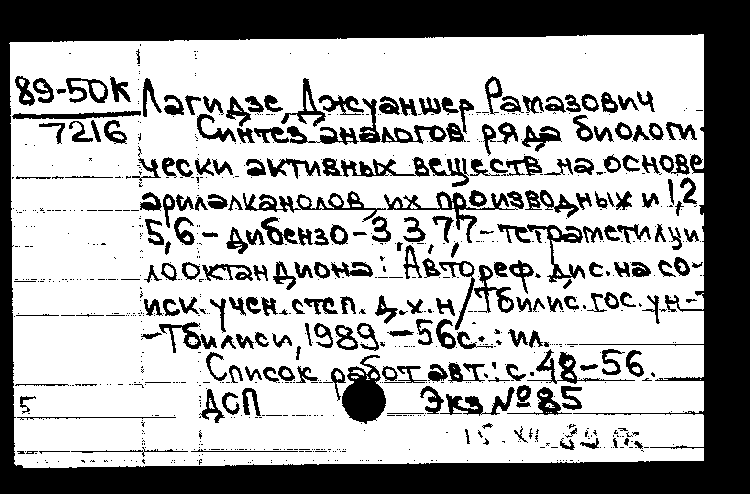 89-50к Лагидзе, Джуаншер Рамазович
7216 Синтез аналогов ряда биологи-
чески активных веществ на основе
арилалканолов, их производных и 1,2,
5,6-дибензо-3,3,7,7-тетраметилци
лооктандиона: Автореф. дис. на со-
иск. учен. степ. д.х.н/Тбилис. гос. ун-т
-Тбилиси, 1989.-56с.: ил.
Список работ авт.: с.48-56.
5 ДСП Экз №85
15.XII.89